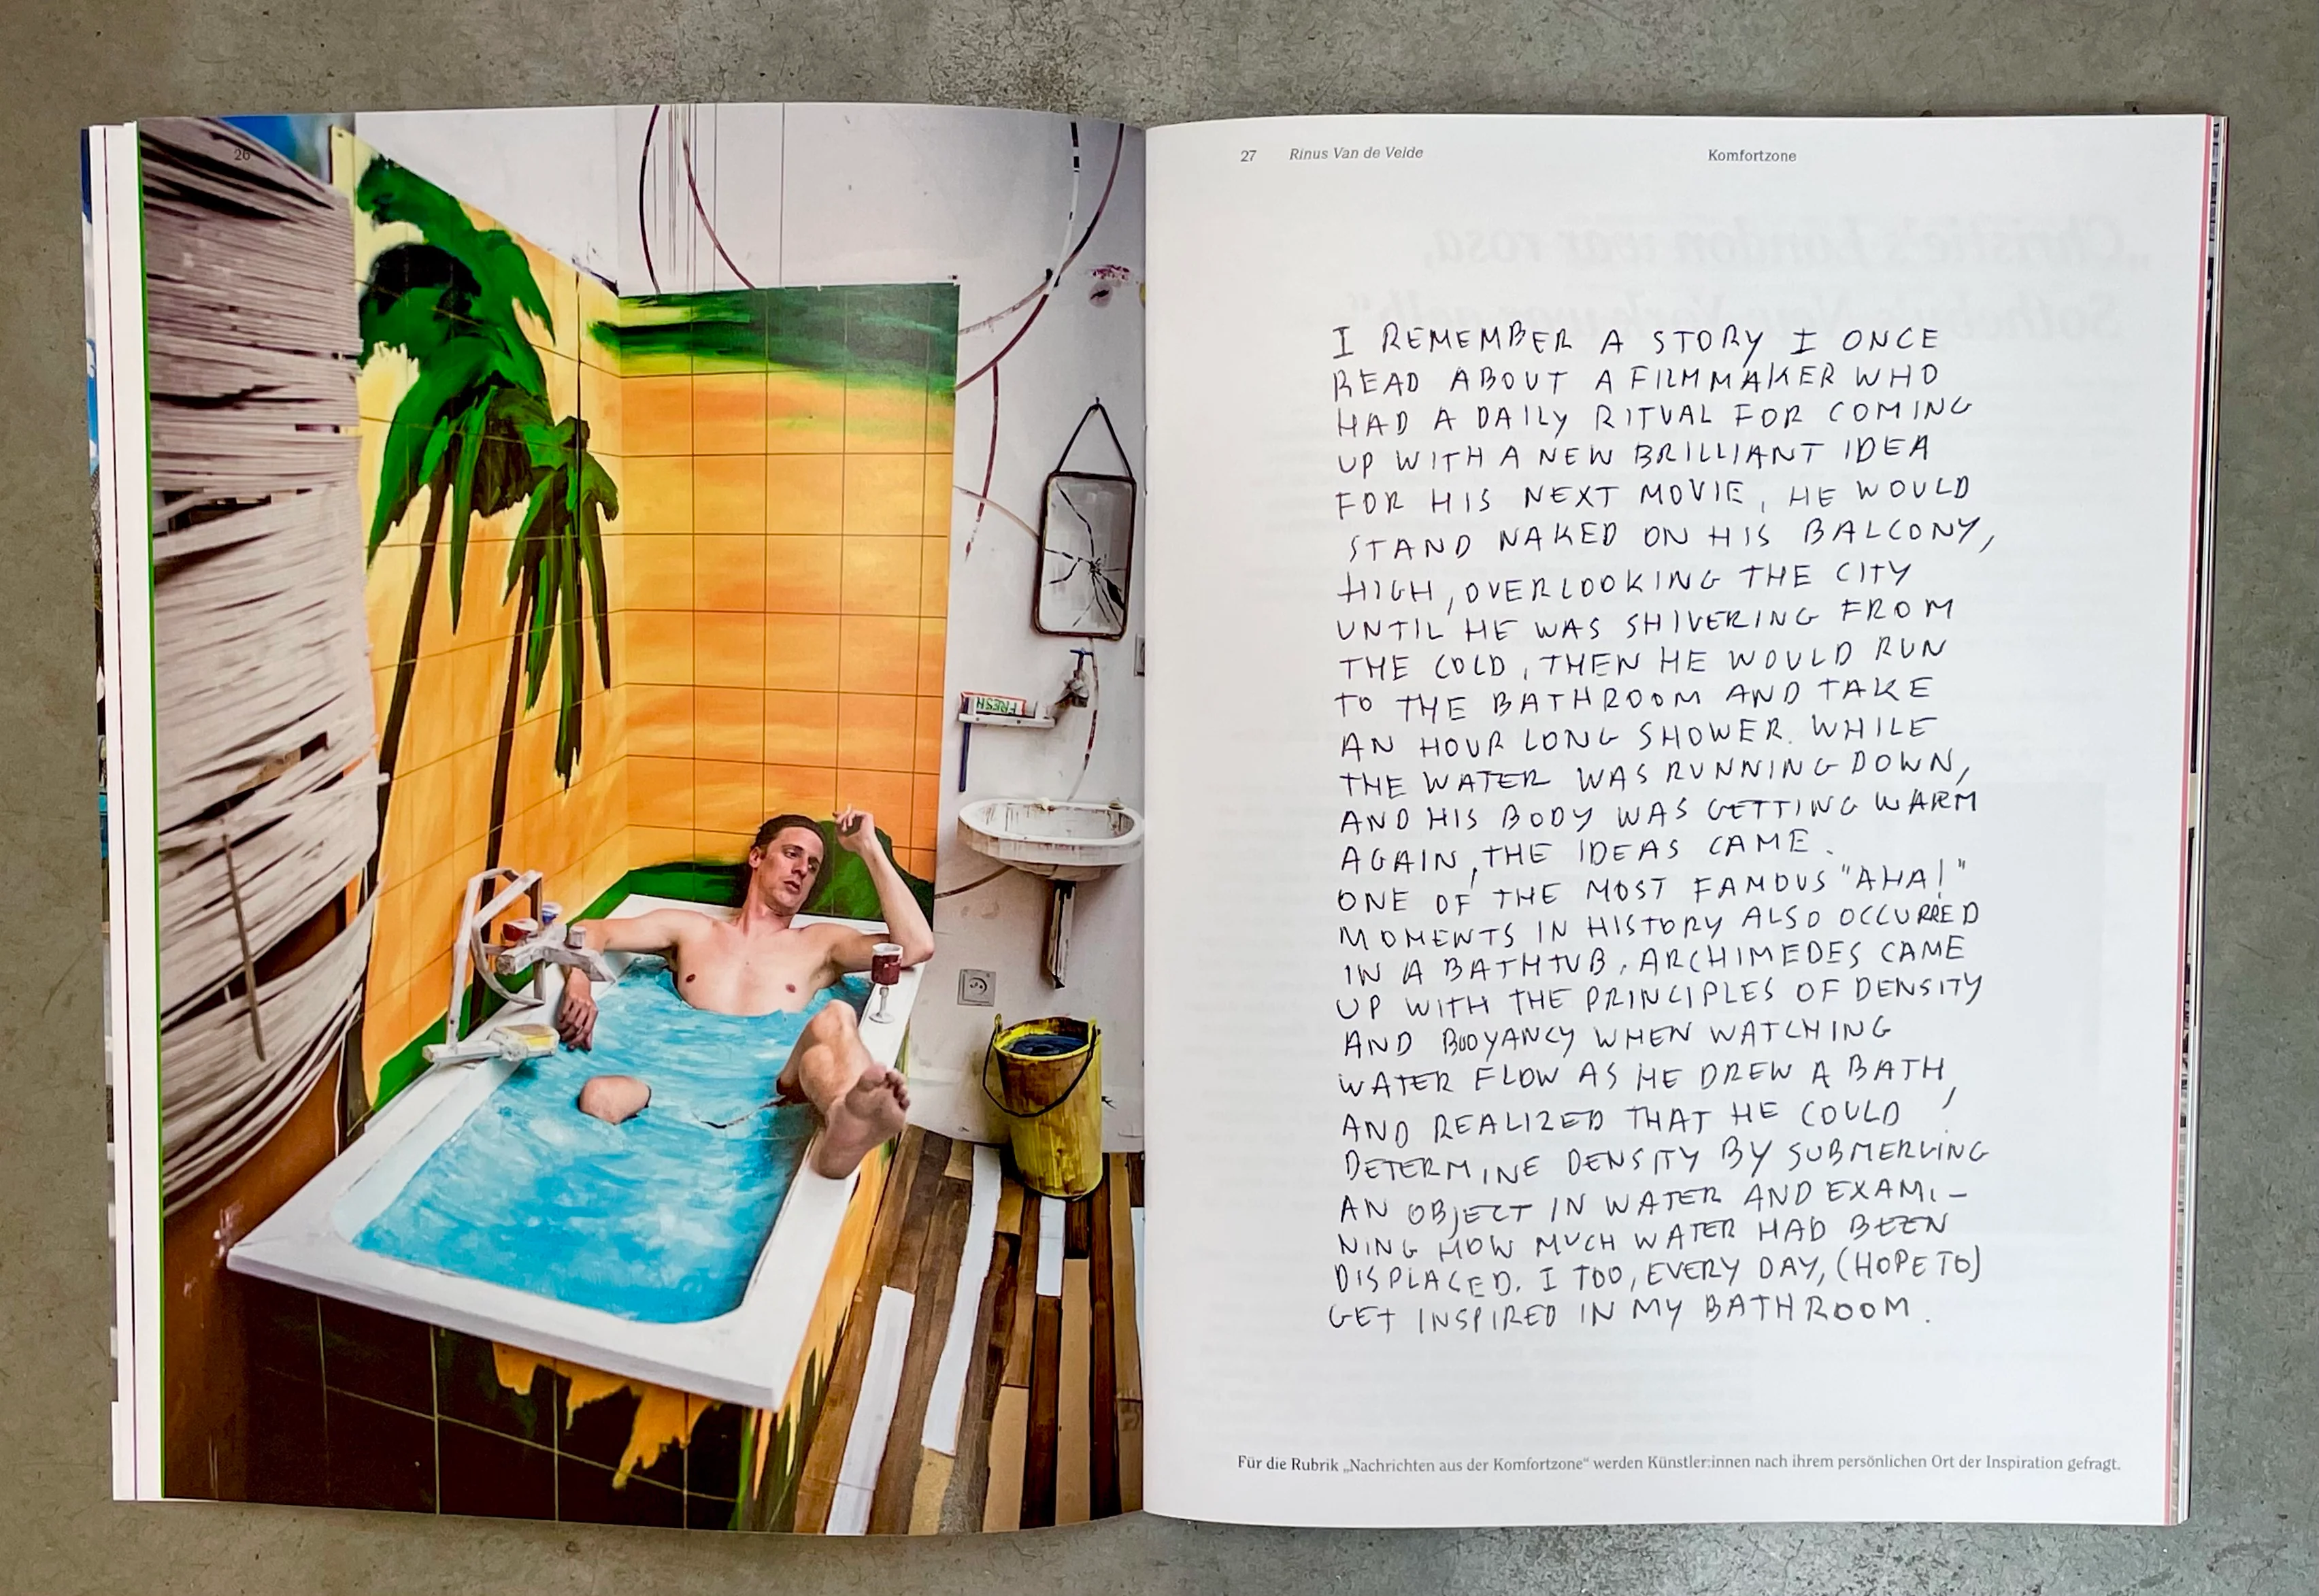 26
FRESH
27 Rinus Van de Velde Komfortzone
I REMEMBER A STORY I ONCE
READ ABOUT A FILMMAKER WHO
HAD A DAILY RITUAL FOR COMING
UP WITH A NEW BRILLIANT IDEA
FOR HIS NEXT MOVIE, HE WOULD
STAND NAKED ON HIS BALCONY,
HIGH, OVERLOOKING THE CITY
UNTIL HE WAS SHIVERING FROM
THE COLD, THEN HE WOULD RUN
TO THE BATHROOM AND TAKE
AN HOUR LONG SHOWER. WHILE
THE WATER WAS RUNNING DOWN,
AND HIS BODY WAS GETTING WARM
AGAIN, THE IDEAS CAME.
ONE OF THE MOST FAMOUS "AHA!"
MOMENTS IN HISTORY ALSO OCCURRED
IN A BATHTUB. ARCHIMEDES CAME
UP WITH THE PRINCIPLES OF DENSITY
AND BUOYANCY WHEN WATCHING
WATER FLOW AS HE DREW A BATH,
AND REALIZED THAT HE COULD
DETERMINE DENSITY BY SUBMERGING
AN OBJECT IN WATER AND EXAMI-
NING HOW MUCH WATER HAD BEEN
DISPLACED. I TOO, EVERY DAY, (HOPE TO)
GET INSPIRED IN MY BATHROOM.
Für die Rubrik „Nachrichten aus der Komfortzone“ werden Künstler:innen nach ihrem persönlichen Ort der Inspiration gefragt.